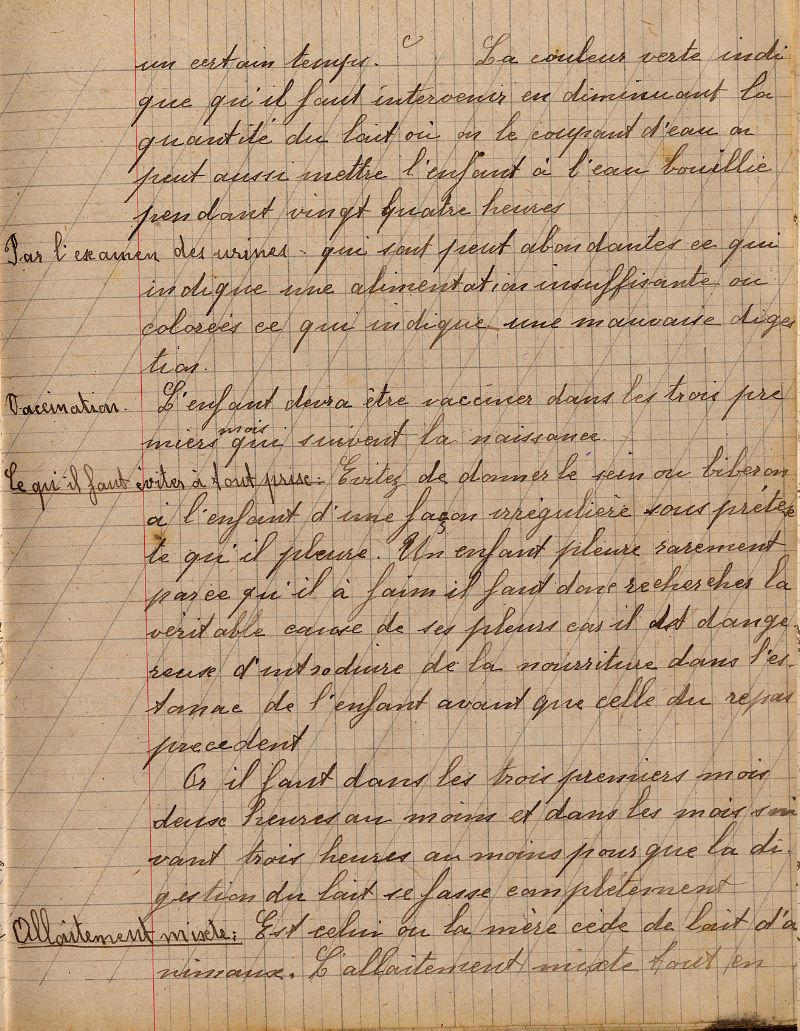 un certain temps. La couleur verte indi
que qu'il faut intervenir en diminuant la
quantité du lait où on le coupant d'eau on
peut aussi mettre l'enfant à l'eau bouillie
pendant vingt quatre heures
Par l'examen des urines - qui sont peut abondantes ce qui
indique une alimentation insuffisante ou
colorées ce qui indique une mauvaise diges
tion.
Vaccination. L'enfant devra être vacciner dans les trois pre
miers mois qui suivent la naissance.
Ce qu'il faut éviter à tout prix: Evitez de donner le sein ou biberon
à l'enfant d'une façon irrégulière sous prétex
te qu'il pleure. Un enfant pleure rarement
parce qu'il à faim il faut donc rechercher la
véritable cause de ses pleurs car il est dange
reuse d'introduire de la nourriture dans l'es-
tomac de l'enfant avant que celle du repas
precedent
Or il faut dans les trois premiers mois
deux heures au moins et dans les mois sui
vant trois heures au moins pour que la di-
gestion du lait se fasse complètement
Allaitement mixte: Est celui ou la mère cède de lait d'a
nimaux. L'allaitement mixte tout en